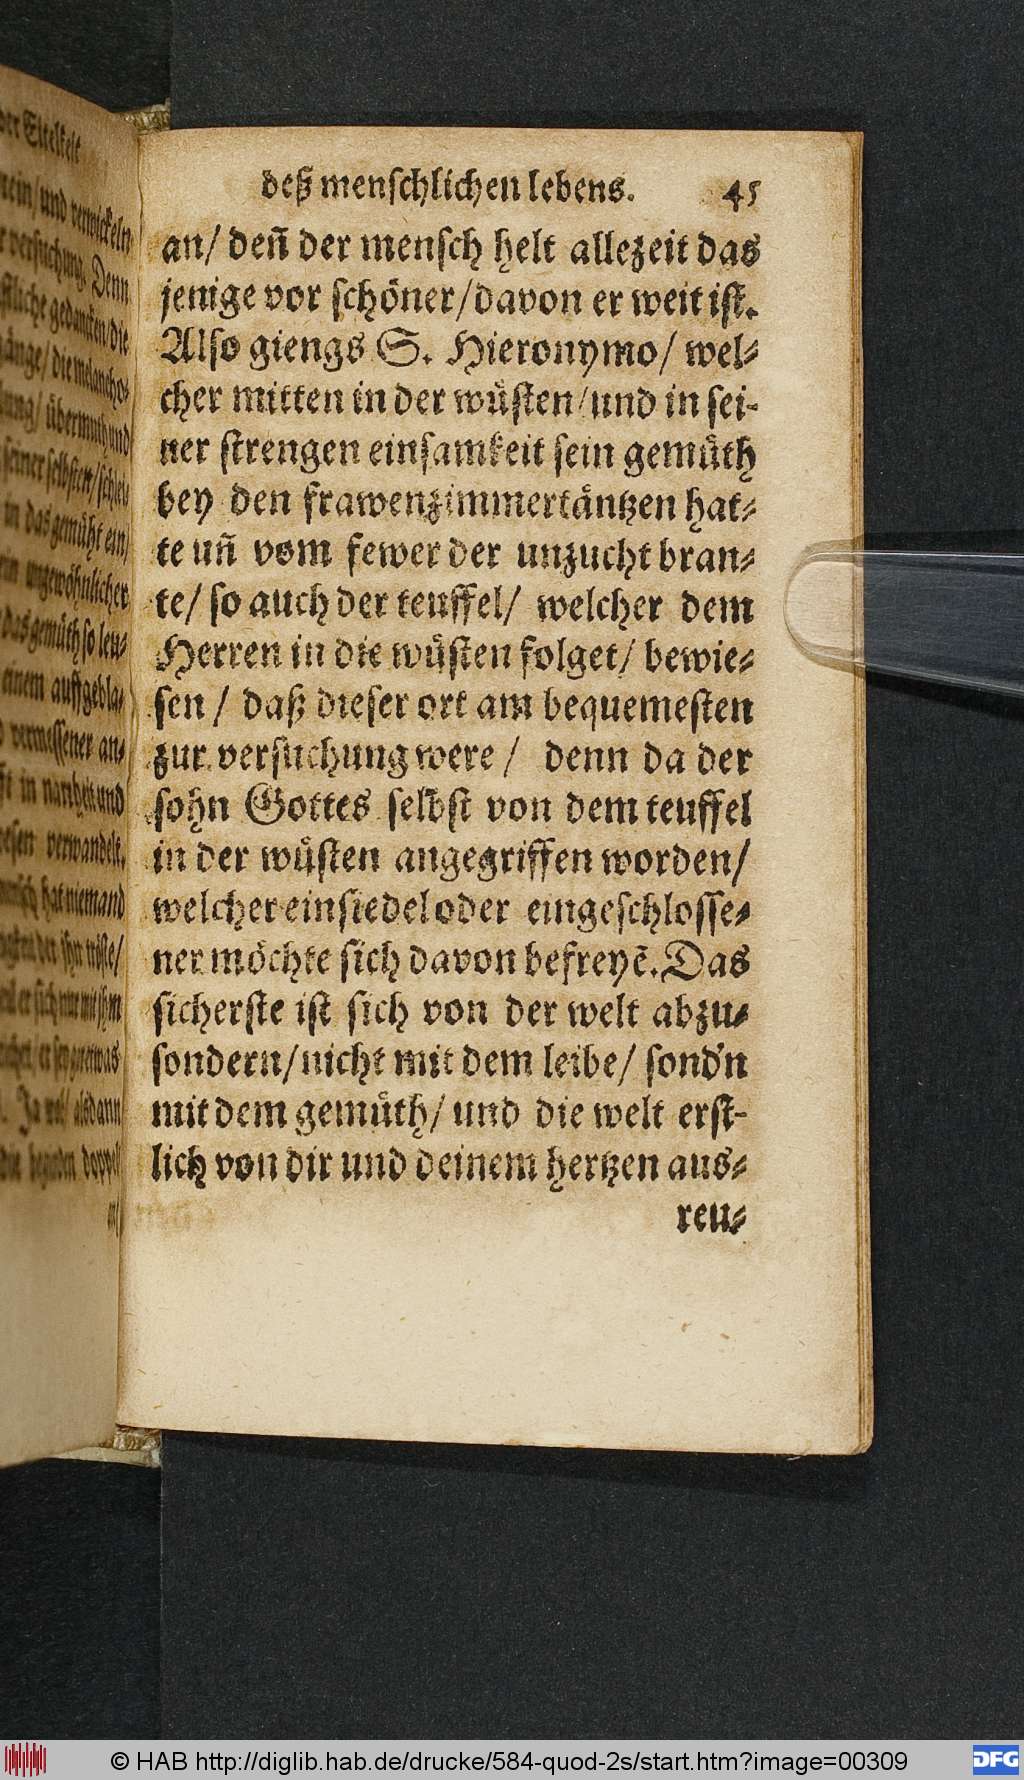 der Eitelkeit
und verwickeln
versuchung. Denn
gedancken/die
/ die melancho-
übermuth und
seiner selbsten/schlei-
in das gemüht ein/
ungewöhnlicher
das gemüth so leu-
einem auffgebla-
vermessener an-
in narrheit und
wesen verwandelt.
hat niemand
alsdann
doppel
deß menschlichen lebens. 45
an/ deñ der mensch helt allezeit das
jenige vor schöner/davon er weit ist.
Also giengs S. Hieronymo/ wel-
cher mitten in der wüsten/und in sei-
ner strengen einsamkeit sein gemüth
bey den frawenzimmertäntzen hat-
te uñ vom fewer der unzucht bran-
te/ so auch der teuffel/ welcher dem
Herren in die wüsten folget/ bewie-
sen / daß dieser ort am bequemesten
zur versuchung were / denn da der
sohn Gottes selbst von dem teuffel
in der wüsten angegriffen worden/
welcher einsiedel oder eingeschlosse-
ner möchte sich davon befreyẽ. Das
sicherste ist sich von der welt abzu-
sondern/nicht mit dem leibe/ sond'n
mit dem gemüth/ und die welt erst-
lich von dir und deinem hertzen aus-
reu-
© HAB http://diglib.hab.de/drucke/584-quod-2s/start.htm?image=00309
DFG